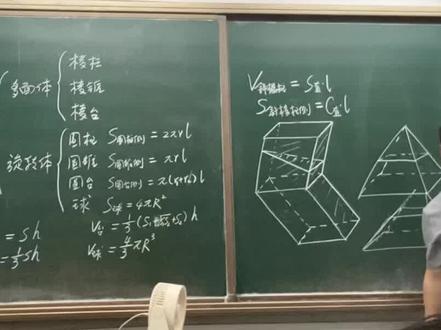 多面体
棱柱
棱锥
棱台
旋转体
圆柱 S圆柱侧 = 2πrl
圆锥 S圆锥侧 = πrl
圆台 S圆台侧 = π(r+r₀)l
球 S球 = 4πR²
V台 = 1/3 (S₁+√S₁S₂+S₂) h
V球 = 4/3 πR³
= Sh
= 1/3 Sh
V斜棱柱 = S直·l
S斜棱柱侧 = C直·l